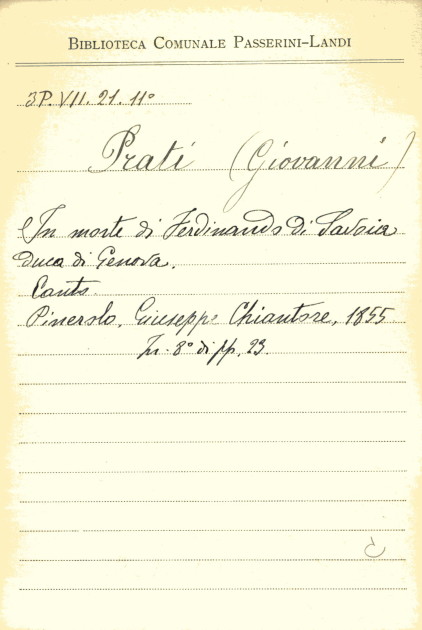 BIBLIOTECA COMUNALE PASSERINI-LANDI
3P. VII. 21. 11º
Prati (Giovanni)
In morte di Ferdinando di Savoia
duca di Genova.
Canto.
Pinerolo, Giuseppe Chiantore, 1855
In-8º di pp. 23.